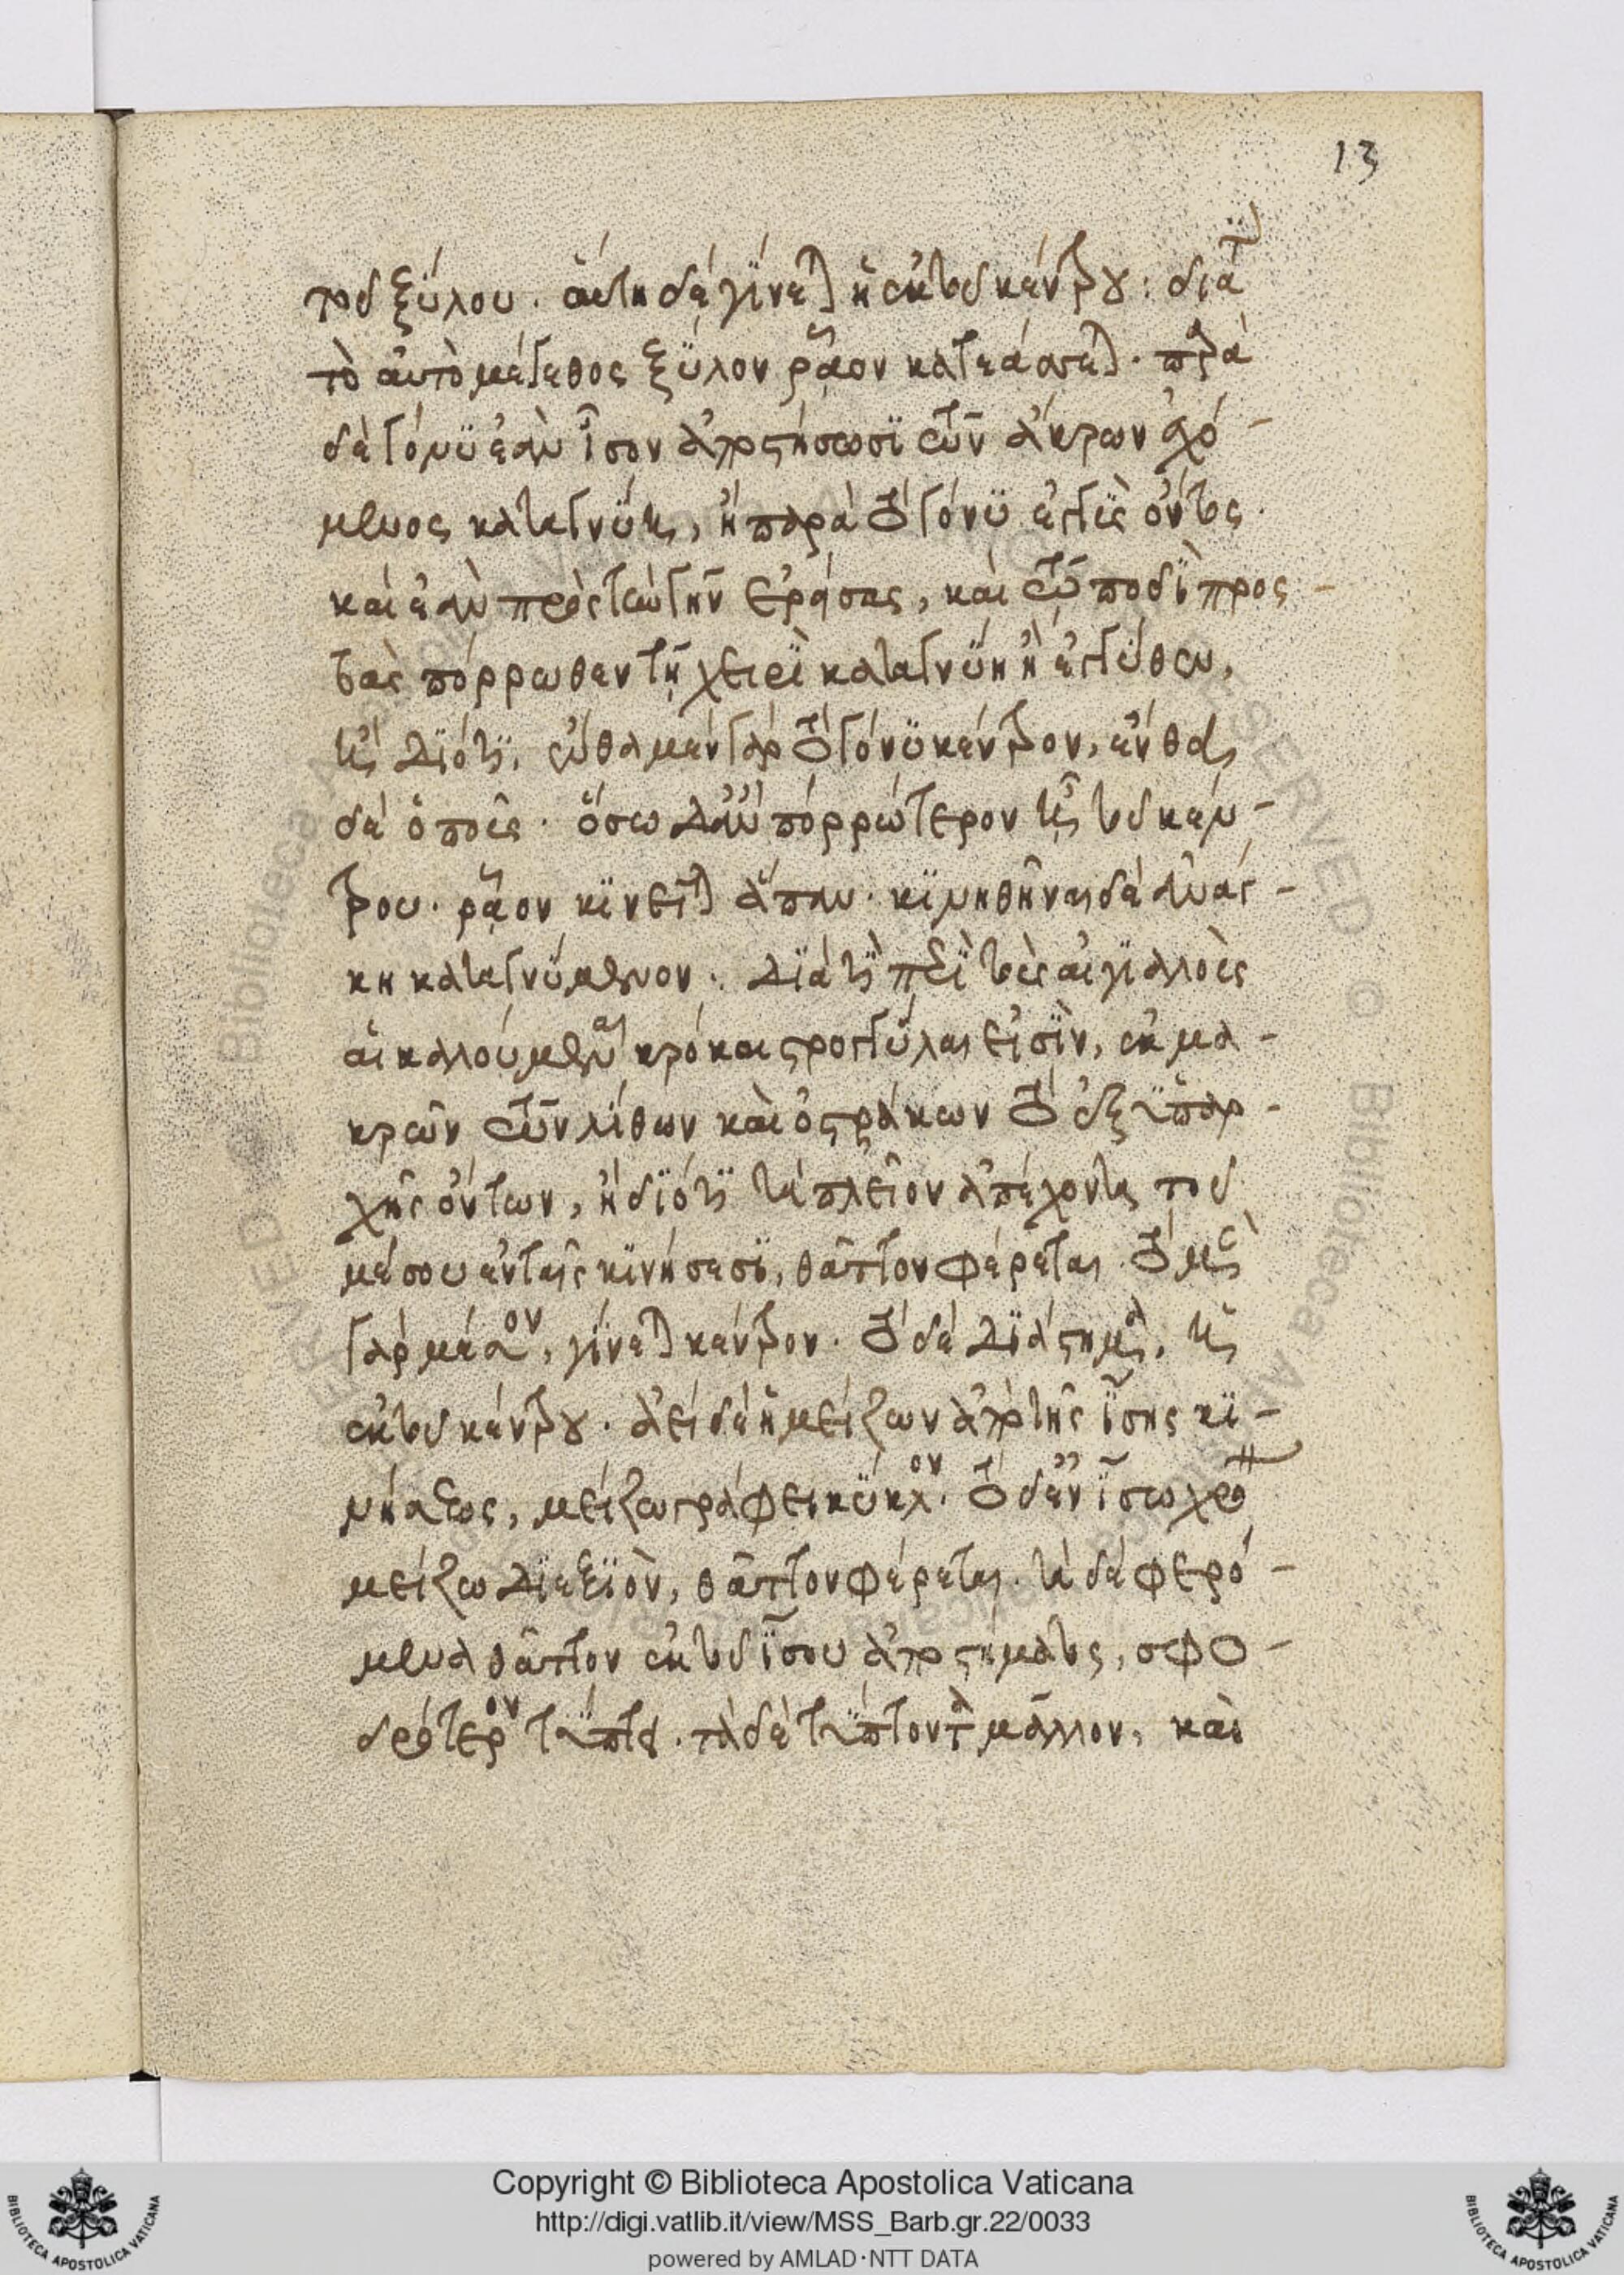 13
τοῦ ξύλου. αὕτη δὲ γίνεται ἡ ἐκ τοῦ κέντρου: διὰ τί
τὸ αὐτὸ μέγεθος ξύλον ῥᾷον κατεάσσεται. περὶ
δὲ γόνυ ἐὰν ἴσον ἀποστήσωσι τῶν ἄκρων ἐχό-
μενος καταγνύῃ, ἢ παρὰ τὸ γόνυ ἐγγὺς ὄντος.
καὶ ἐὰν πρὸς τὴν γῆν ἐρείσας, καὶ τῷ ποδὶ προς-
βὰς πόρρωθεν τῇ χειρὶ καταγνύῃ ἢ ἐγγύθεν,
ἢ διότι, ἔνθα μὲν γὰρ τὸ γόνυ κέντρον, ἔνθα
δὲ ὁ πούς. ὅσω δ' ἂν πορρώτερον ᾖ τοῦ κέν-
τρου. ῥᾷον κινεῖται ἅπαν. κινηθῆναι δὲ ἀνάγ-
κη καταγνύμενον. διὰ τί περὶ τοὺς αἰγιαλοὺς
αἱ καλούμεναι κρόκαι στρογγύλαι εἰσὶν, ἐκ μα-
κρῶν τῶν λίθων καὶ ὀστράκων τὸ ἐξ ὑπαρ-
χῆς ὄντων, ἢ διότι τὰ πλεῖον ἀπέχοντα τοῦ
μέσου ἐν ταῖς κινήσεσι, θᾶττον φέρεται. τὸ μὲν
γὰρ μέσον, γίνεται κέντρον. τὸ δὲ διάστημα, ἡ
ἐκ τοῦ κέντρου. ἀεὶ δὲ ἡ μείζων ἀπὸ τῆς ἴσης κι-
νήσεως, μείζω γράφει κύκλον. τὸ δ' ἐν ἴσω χρόνω
μείζω διεξιὸν, θᾶττον φέρεται. τὰ δὲ φερό-
μενα θᾶττον ἐκ τοῦ ἴσου ἀποστήματος, σφο-
δρότερον τύπτει. τὰ δὲ τύπτοντα μᾶλλον, καὶ
Copyright © Biblioteca Apostolica Vaticana
http://digi.vatlib.it/view/MSS_Barb.gr.22/0033
powered by AMLAD·NTT DATA